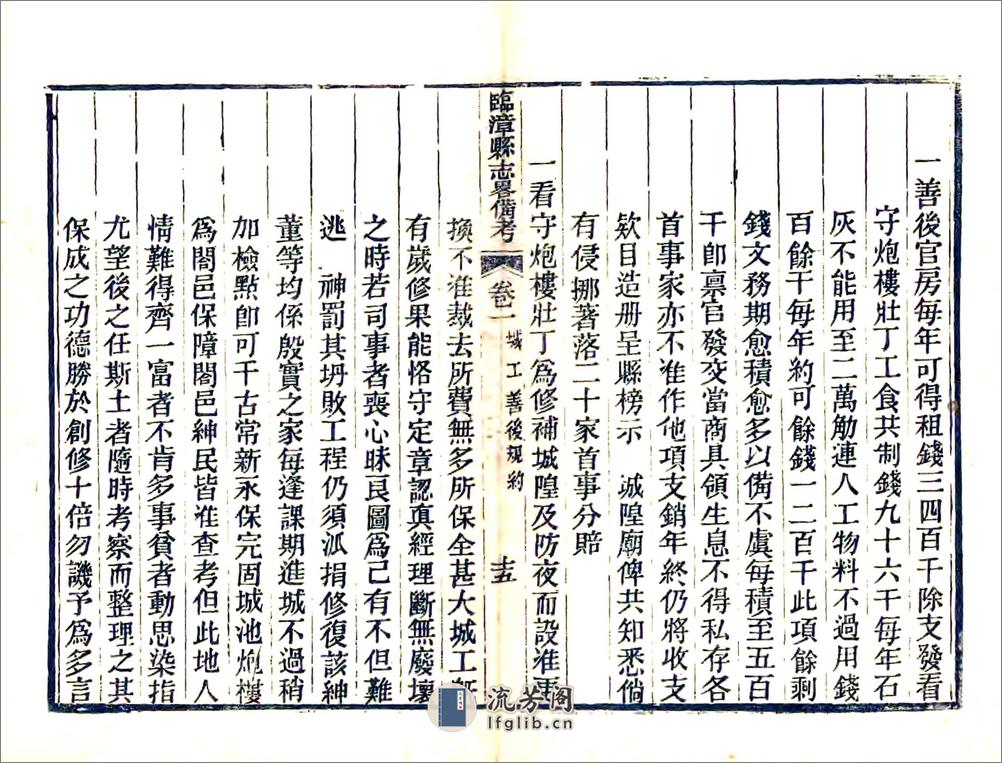 一善後官房每年可得租錢三四百千除支發看
守炮樓壯丁工食共制錢九十六千每年石
灰不能用至二萬觔連人工物料不過用錢
百餘千每年約可餘錢一二百千此項餘剩
錢文務期愈積愈多以備不虞每積至五百
千卽禀官發交當商具領生息不得私存各
首事家亦不准作他項支銷年終仍將收支
欵目造册呈縣榜示 城隍廟俾共知悉倘
有侵挪著落二十家首事分賠
一看守炮樓壯丁爲修補城隍及防夜而設准更
臨漳縣志畧備考 卷二 城工善後規約 十五
換不准裁去所費無多所保全甚大城工旣
有歲修果能恪守定章認眞經理斷無廢壞
之時若司事者喪心昧良圖爲己有不但難
逃 神罰其坍敗工程仍須派捐修復該紳
董等均係殷實之家每逢課期進城不過稍
加檢點卽可千古常新永保完固城池炮樓
爲闔邑保障闔邑紳民皆准查考但此地人
情難得齊一富者不肯多事貧者動思染指
尤望後之任斯土者隨時考察而整理之其
保成之功德勝於創修十倍勿譏予爲多言
流芳阁
lfglib.cn